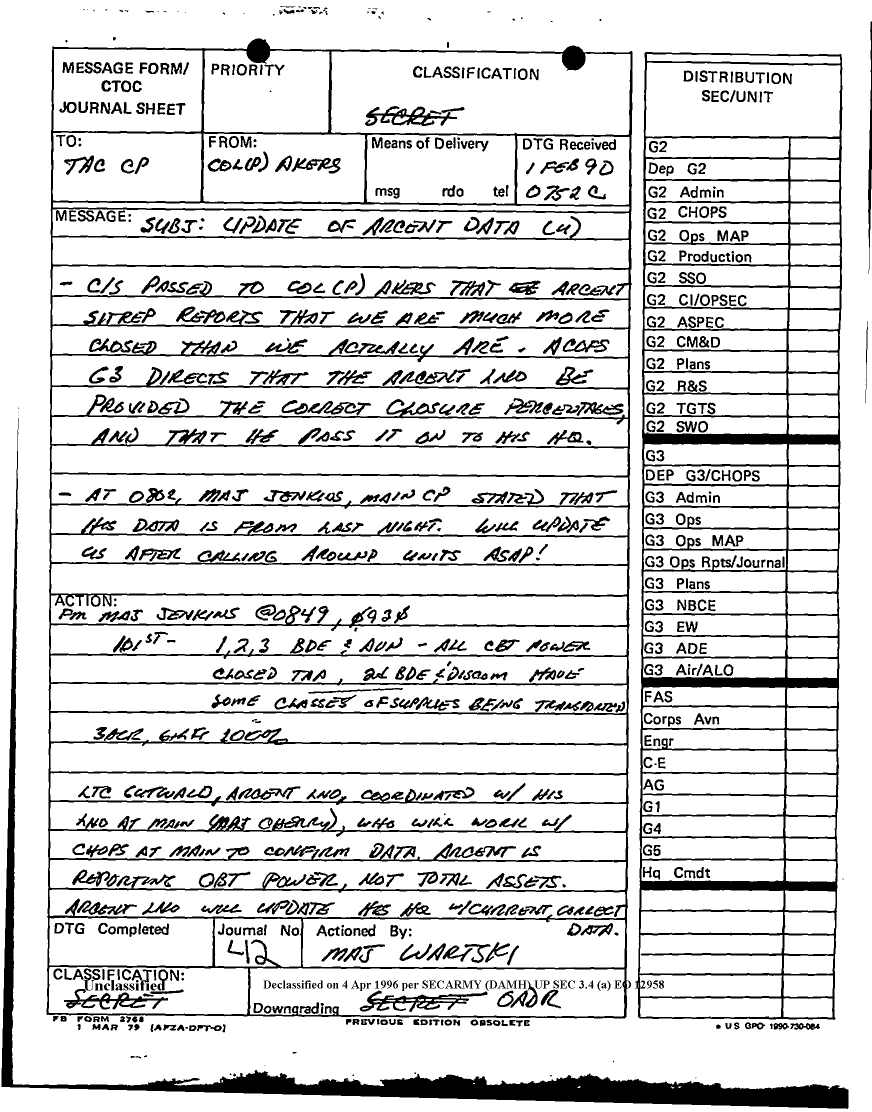 MESSAGE FORM/
CTOC
JOURNAL SHEET
PRIORITY
CLASSIFICATION
SECRET
TO:
TAC CP
FROM:
COL(P) AKERS
Means of Delivery
msg rdo tel
DTG Received
1 FEB 9D
0752 C
MESSAGE: SUBJ: UPDATE OF ARCENT DATA (U)
- C/S PASSED TO COL(P) AKERS THAT ARCENT
SITREP REPORTS THAT WE ARE MUCH MORE
CLOSED THAN WE ACTUALLY ARE. ACOFS
G3 DIRECTS THAT THE ARCENT LNO BE
PROVIDED THE CORRECT CLOSURE PERCENTAGES,
AND THAT HE PASS IT ON TO HIS HQ.
- AT 0802, MAJ JENKINS, MAIN CP STATED THAT
HIS DATA IS FROM LAST NIGHT. WILL UPDATE
US AFTER CALLING AROUND UNITS ASAP!
ACTION:
Fm MAJ JENKINS @0849, 0930
101ST- 1,2,3 BDE & AVN - ALL CBT POWER
CLOSED TAA, 2d BDE & DISCOM HAVE
SOME CLASSES OF SUPPLIES BEING TRANSPORTED
3ACR, 100%
LTC GUTWALD, ARCENT LNO, COORDINATED W/ HIS
LNO AT MAIN (MAJ CHERRY), WHO WILL WORK W/
CHOPS AT MAIN TO CONFIRM DATA. ARCENT IS
REPORTING CBT POWER, NOT TOTAL ASSETS.
ARCENT LNO WILL UPDATE HIS HQ W/CURRENT, CORRECT
DATA.
DTG Completed
Journal No
42
Actioned By:
MAJ WARTSKI
CLASSIFICATION:
Unclassified
SECRET
Declassified on 4 Apr 1996 per SECARMY (DAMH) UP SEC 3.4 (a) EO 12958
Downgrading SECRET OADR
FB FORM 2768
1 MAR 79 (AFZA-DPT-O)
PREVIOUS EDITION OBSOLETE
DISTRIBUTION
SEC/UNIT
G2
Dep G2
G2 Admin
G2 CHOPS
G2 Ops MAP
G2 Production
G2 SSO
G2 CI/OPSEC
G2 ASPEC
G2 CM&D
G2 Plans
G2 R&S
G2 TGTS
G2 SWO
G3
DEP G3/CHOPS
G3 Admin
G3 Ops
G3 Ops MAP
G3 Ops Rpts/Journal
G3 Plans
G3 NBCE
G3 EW
G3 ADE
G3 Air/ALO
FAS
Corps Avn
Engr
C-E
AG
G1
G4
G5
Hq Cmdt
* U S GPO: 1990-730-084